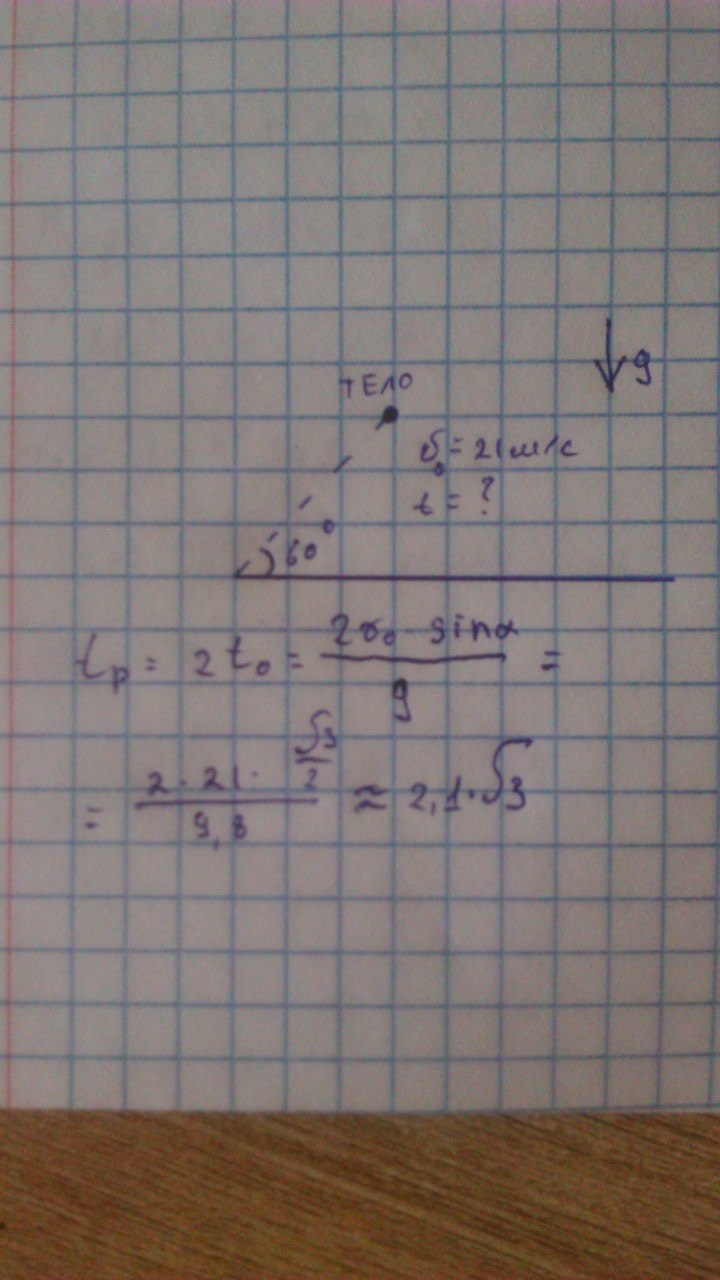 g
ТЕЛО
υ₀ = 21 м/с
t = ?
60°
tₚ = 2t₀ = 2υ₀·sinα/g =
= 2·21·√3/2/9,8 ≈ 2,1·√3